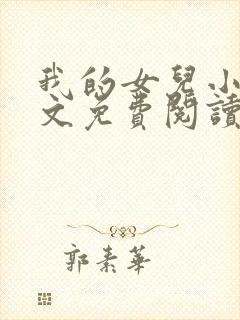 我的女兒小
文免費閱讀
郭素華